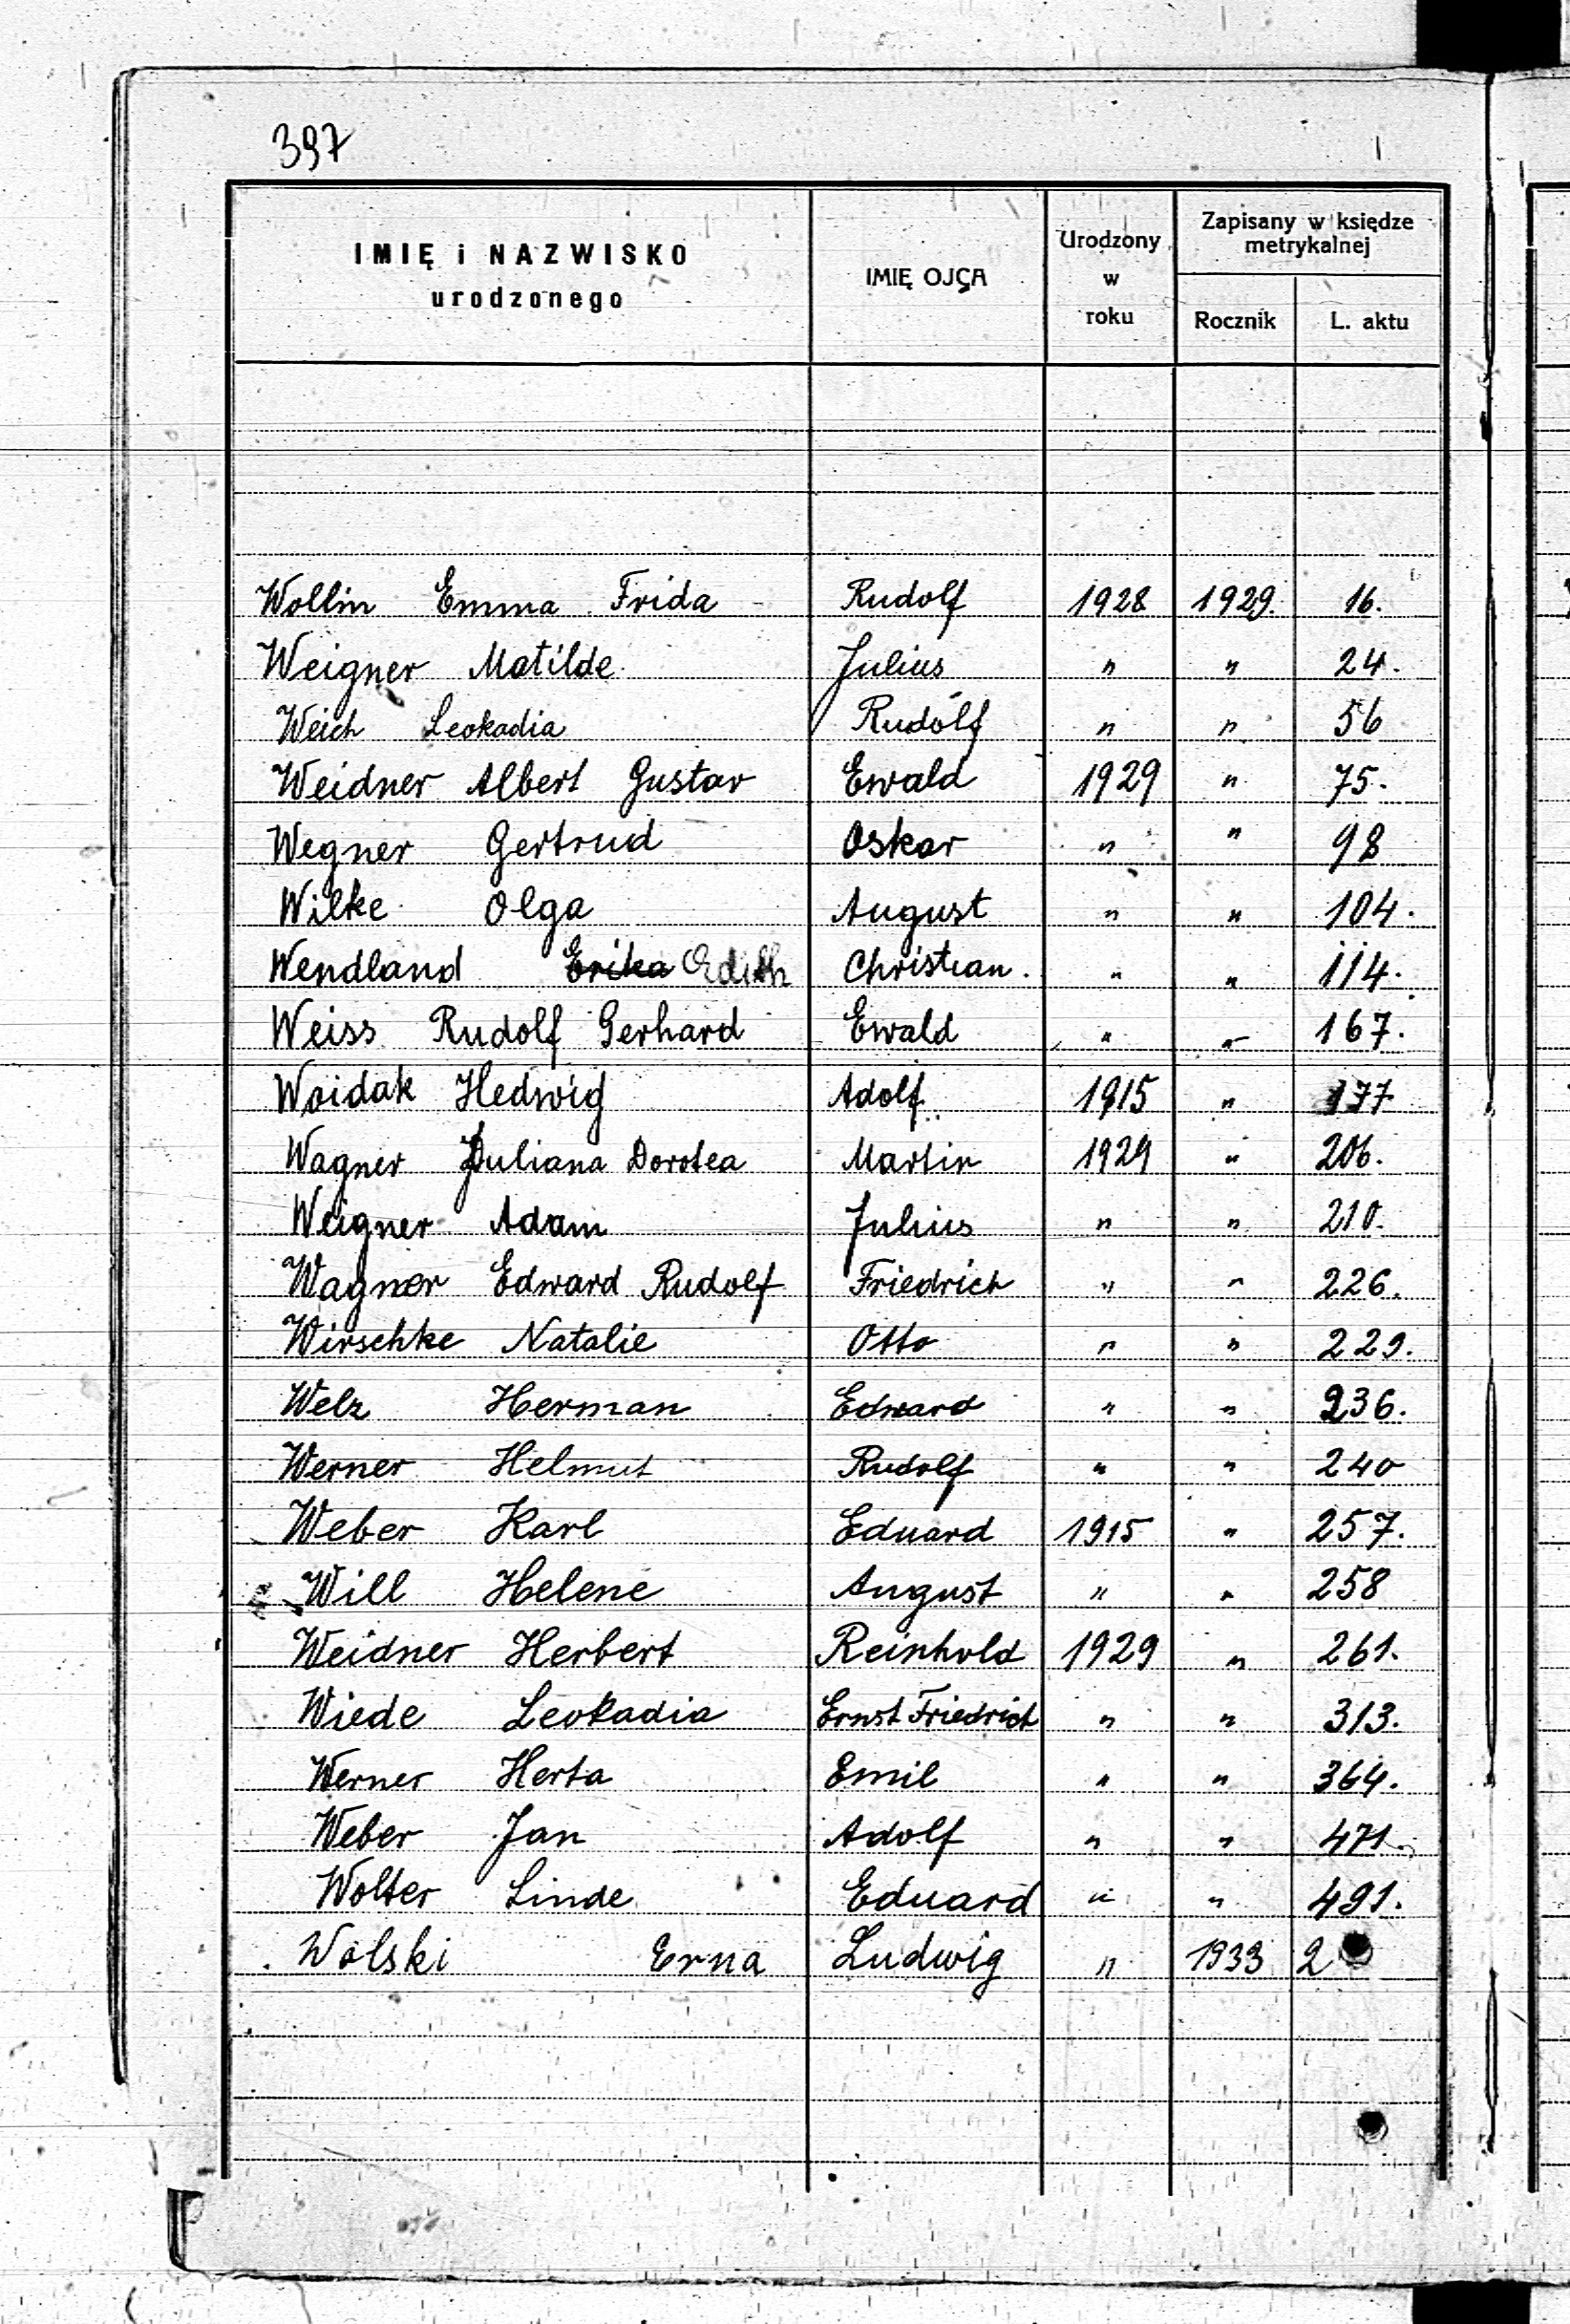 397
IMIĘ i NAZWISKO urodzonego IMIĘ OJCA Urodzony w roku Zapisany w księdze metrykalnej Rocznik L. aktu
Wollin Emma Frida Rudolf 1928 1929. 16.
Weigner Matilde Julius " " 24.
Weich Leokadia Rudolf " " 56
Weidner Albert Gustav Ewald 1929 " 75.
Wegner Gertrud Oskar " " 98
Wilke Olga August " " 104.
Wendland Erika Edith Christian. " " 114.
Weiss Rudolf Gerhard Ewald " " 167.
Woidak Hedwig Adolf 1915 " 177
Wagner Juliana Dorotea Martin 1929 " 206.
Weigner Adam Julius " " 210.
Wagner Edward Rudolf Friedrich " " 226.
Wirschke Natalie Otto " " 229.
Welz Herman Edward " " 236.
Werner Helmut Rudolf " " 240
Weber Karl Eduard 1915 " 257.
Will Helene August " " 258
Weidner Herbert Reinhold 1929 " 261.
Wiede Leokadia Ernst Friedrich " " 313.
Werner Herta Emil " " 364.
Weber Jan Adolf " " 471.
Wolter Linde Eduard " " 491.
Wolski Erna Ludwig " 1933 2